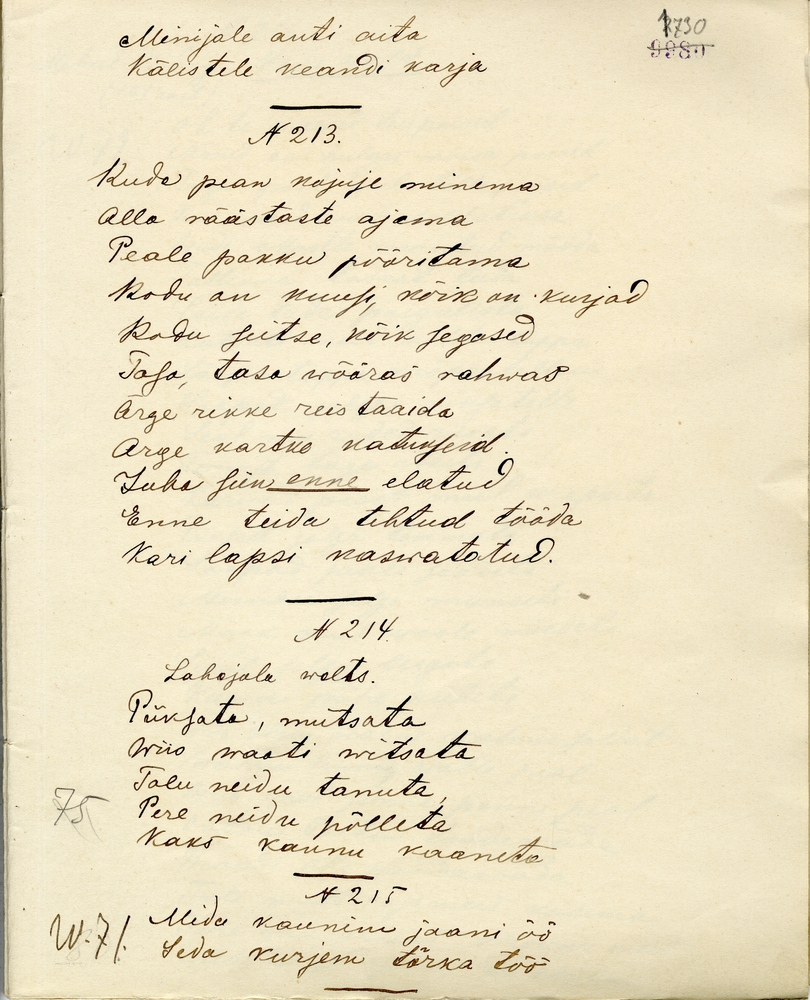 Minijale anti aita
Kälistele keandi karja
8730
9980
N 213.
Kuda pean kojuje minema
Alla räästaste ajama
Peale pakku pööritama
Kodu on kuusi, kõik on kurjad
Kodu seitse, kõik segased
Tasa, tasa wööras rahwas
Ärge rikke reis taaida
Arge kartko katukseid.
Juba siin enne elatud
Enne teida tehtud tööda
Kari lapsi kaswatatud.
N 214.
Lahejala walts.
Püksata, mütsata
Wiis waati witsata
Talu neidu tanuta,
75
Pere neidu põlleta
Kaks kaunu kaaneta
N 215
W. 71.
Mida kaunim jaani öö
Seda kurjem tõrka töö